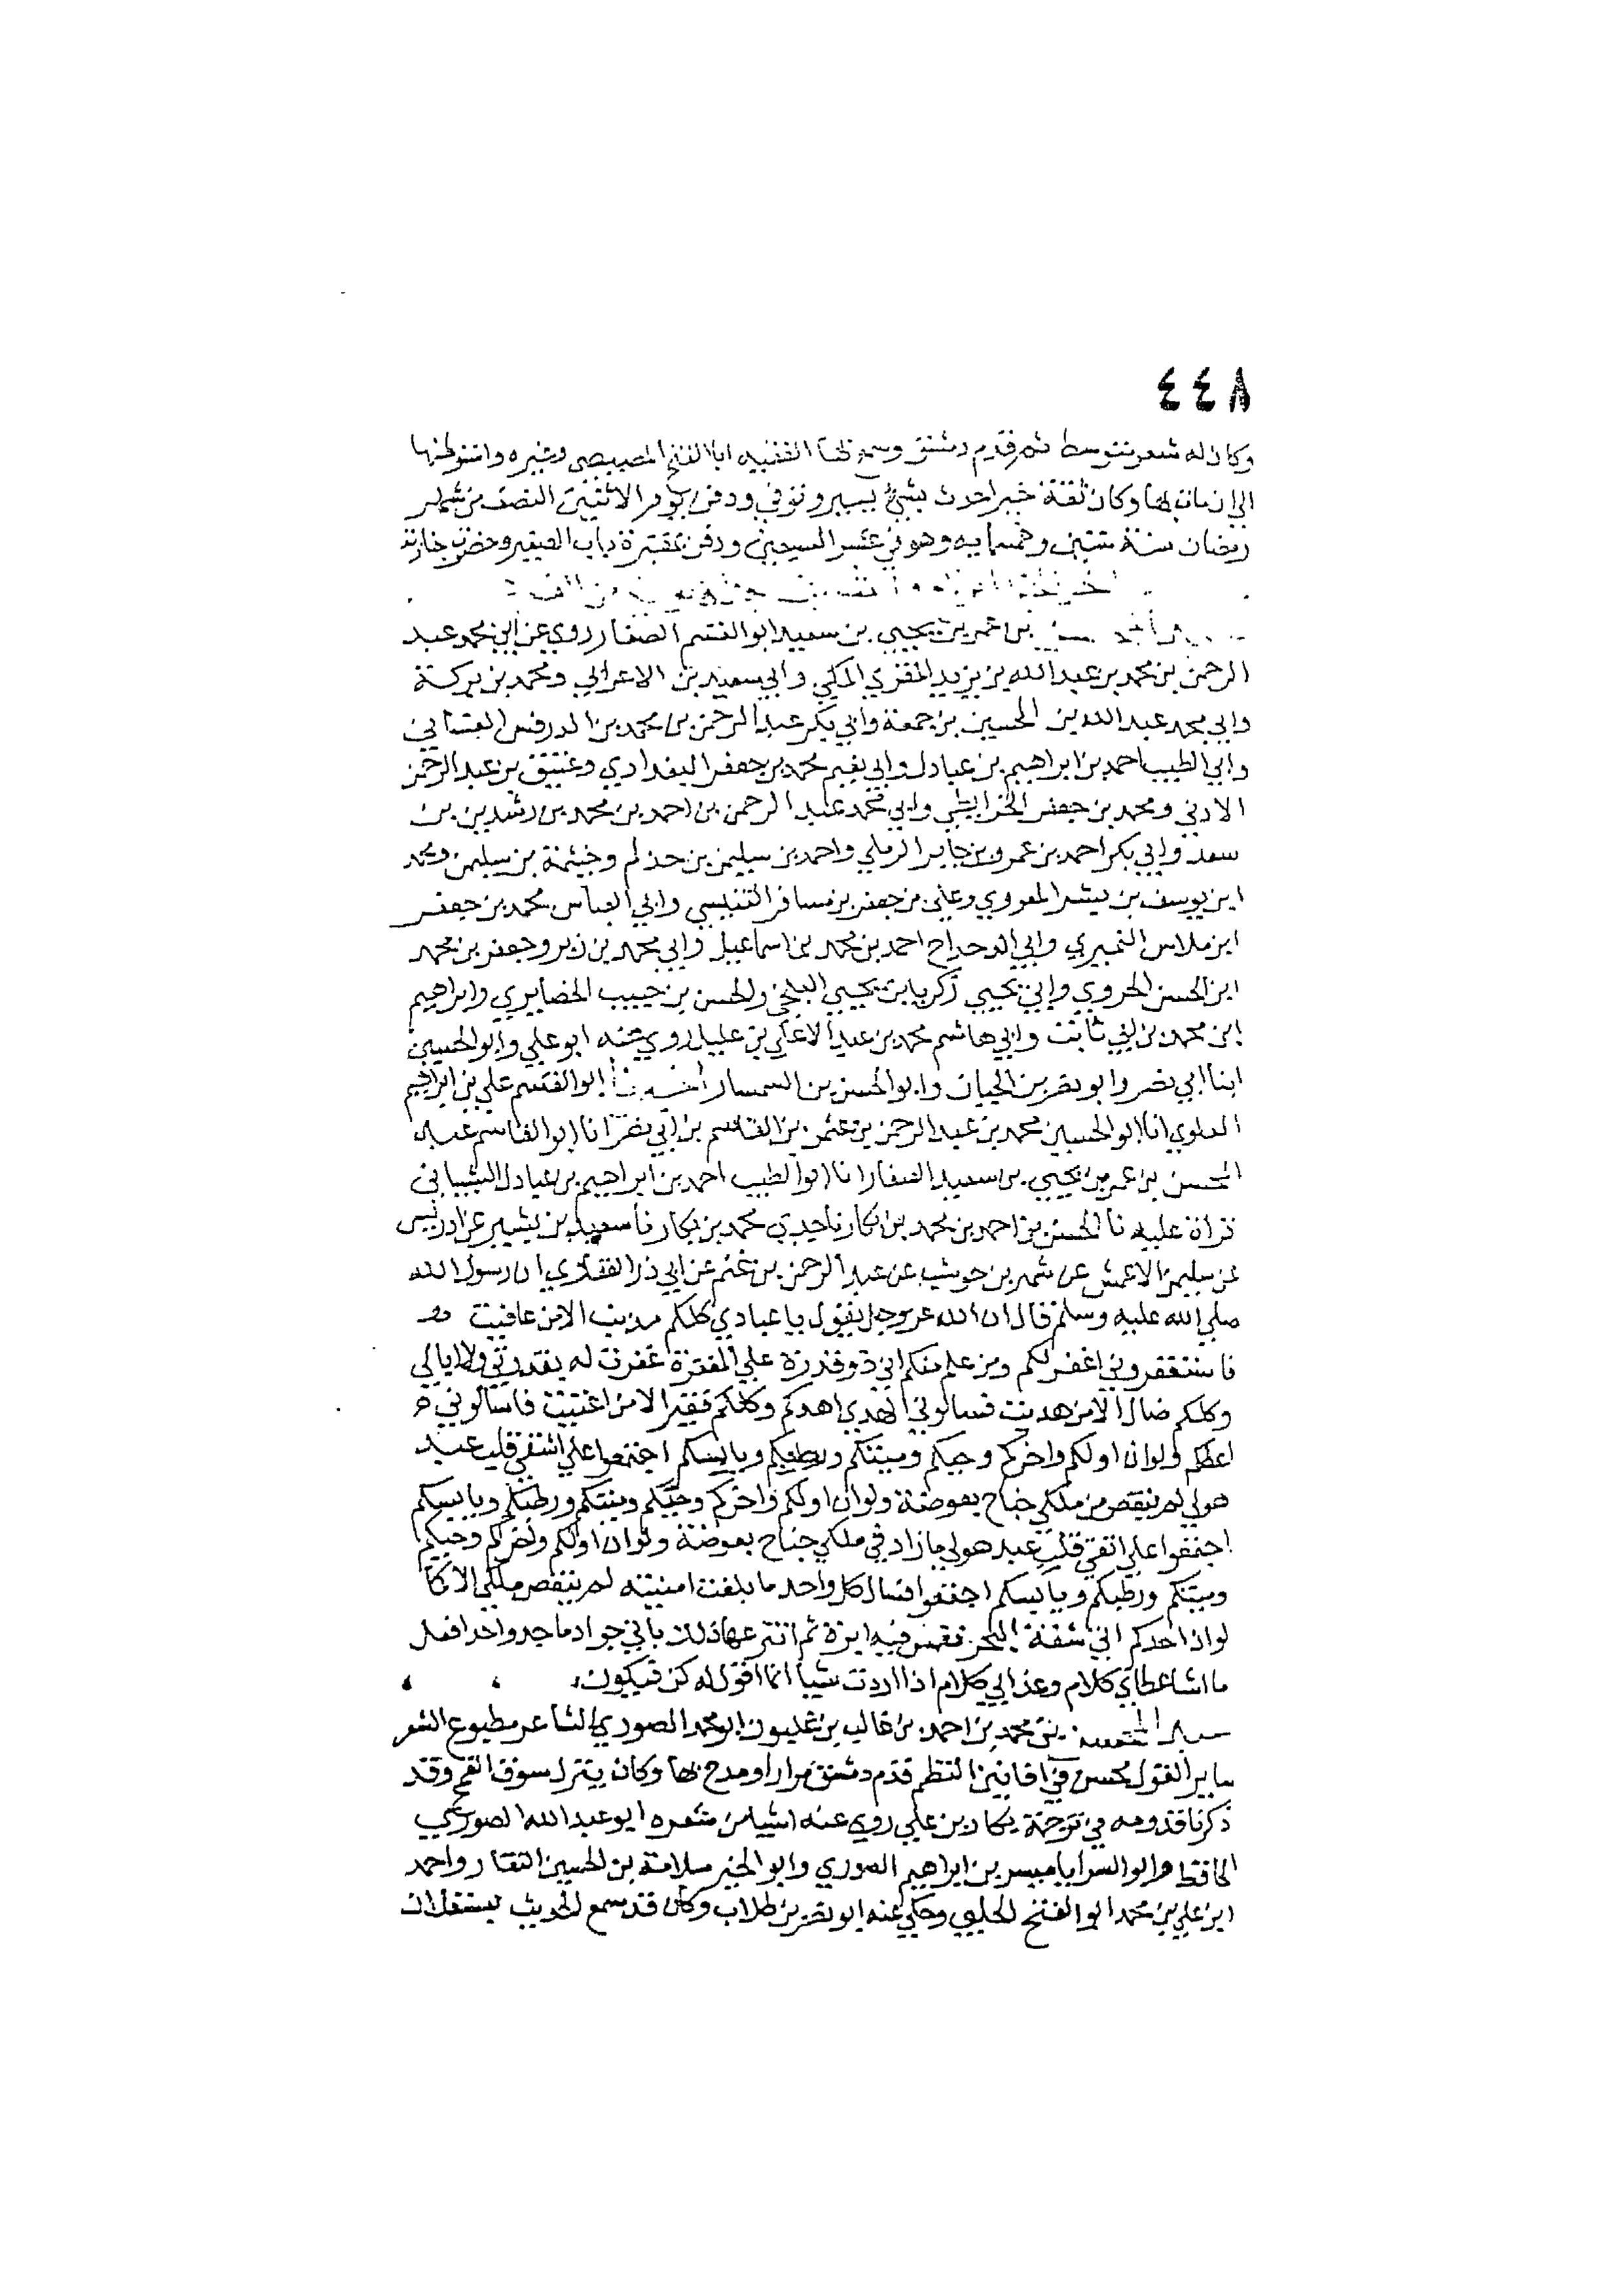 ٤٤٨
وكان له شعر متوسط ثم قدم دمشق وسمع بها الفقيه ابا الفتح المصيصي وغيره واستوطنها
الي ان مات بها وكان ثقة خيرا حدث بشيء يسير وتوفي ودفن يوم الاثنين النصف من شهر
رمضان سنة ستين وخمسمايه وهو في عشر السبعين ودفن بمقبرة باب الصغير وحضرت جنازته
بن عمر بن يحيي بن سعيد ابو القسم الصفار روي عن ابي محمد عبد
الرحمن بن محمد بن عبد الله بن يزيد المقري المكي وابي سعيد بن الاعرابي ومحمد بن بركة
وابي محمد عبد الله بن الحسين بن جمعة وابي بكر عبد الرحمن بن محمد بن الدرفس الغساني
وابي الطيب احمد بن ابراهيم بن عبادل وابي نعيم محمد بن جعفر البغدادي وعتيق بن عبد الرحمن
الادني ومحمد بن جعفر الخرايطي وابي محمد عبد الرحمن بن احمد بن محمد بن رشدين بن
سعد وابي بكر احمد بن عمرو بن جابر الرملي واحمد بن سليمن بن حذلم وخيثمة بن سليمن ومحمد
ابن يوسف بن بشر الهروي وعلي بن جعفر بن مسافر التنيسي وابي العباس محمد بن جعفر
ابن ملاس النميري وابي الدحداح احمد بن محمد بن اسماعيل وابي محمد بن زبر وجعفر بن محمد
ابن الحسن الهروي وابي يحيي زكريا بن يحيي البلخي والحسن بن حبيب الحضايري وابراهيم
ابن محمد بن ابي ثابت وابي هاشم محمد بن عبد الاعلي بن عليل روي عنه ابو علي وابو الحسين
ابنا ابي نصر وابو نصر بن الجبان وابو الحسن بن السمسار ابو القسم علي بن ابراهيم
العلوي انا ابو الحسين محمد بن عبد الرحمن بن عثمن بن القاسم بن ابي نصر انا ابو القاسم عبد
المحسن بن عمر بن يحيي بن سعيد الصفار انا ابو الطيب احمد بن ابراهيم بن عبادل الشيباني
قراة عليه نا الحسن بن احمد بن محمد بن بكار نا جدي محمد بن بكار نا سعيد بن بشير عن ادريس
عن سليمن الاعمش عن شهر بن حوشب عن عبد الرحمن بن غنم عن ابي ذر الغفاري ان رسول الله
صلي الله عليه وسلم قال ان الله عز وجل يقول يا عبادي كلكم مذنب الا من عافيت
فاستغفروني اغفر لكم ومن علم منكم اني ذو قدرة علي المغفرة غفرت له بقدرتي ولا ابالي
وكلكم ضال الا من هديت فسالوني الهدي اهدكم وكلكم فقير الا من اغنيت فاسالوني
اعطكم ولو ان اولكم واخركم وحيكم وميتكم ورطبكم ويابسكم اجتمعوا علي اشقي قلب عبد
هو لي لم ينقص من ملكي جناح بعوضة ولو ان اولكم واخركم وحيكم وميتكم ورطبكم ويابسكم
اجتمعوا علي اتقي قلب عبد هو لي ما زاد في ملكي جناح بعوضة ولو ان اولكم واخركم وحيكم
وميتكم ورطبكم ويابسكم اجتمعوا فسال كل واحد ما بلغت امنيته لم ينقص ملكي الا كما
لو ان احدكم اتي شفة البحر فغمس فيه ابرة ثم انتزعها ذلك باني جواد ماجد واحد افعل
ما اشا عطاي كلام وعذابي كلام اذا اردت شيا انما اقول له كن فيكون
عبد المحسن بن محمد بن احمد بن غالب بن غلبون ابو محمد الصوري الشاعر مطبوع الشعر
ساير القول محسن في افانين النظم قدم دمشق مرارا ومدح بها وكان ينزل سوق القمح وقد
ذكرنا قدومه في ترجمة بكار بن علي روي عنه اشيا من شعره ابو عبد الله الصوري
الحافظ وابو السرايا ميسر بن ابراهيم الصوري وابو الخير سلامة بن الحسين النقار واحمد
ابن علي بن محمد ابو الفتح الحلبي وحكي عنه ابو نصر بن طلاب وكان قد سمع الحديث بعسقلان